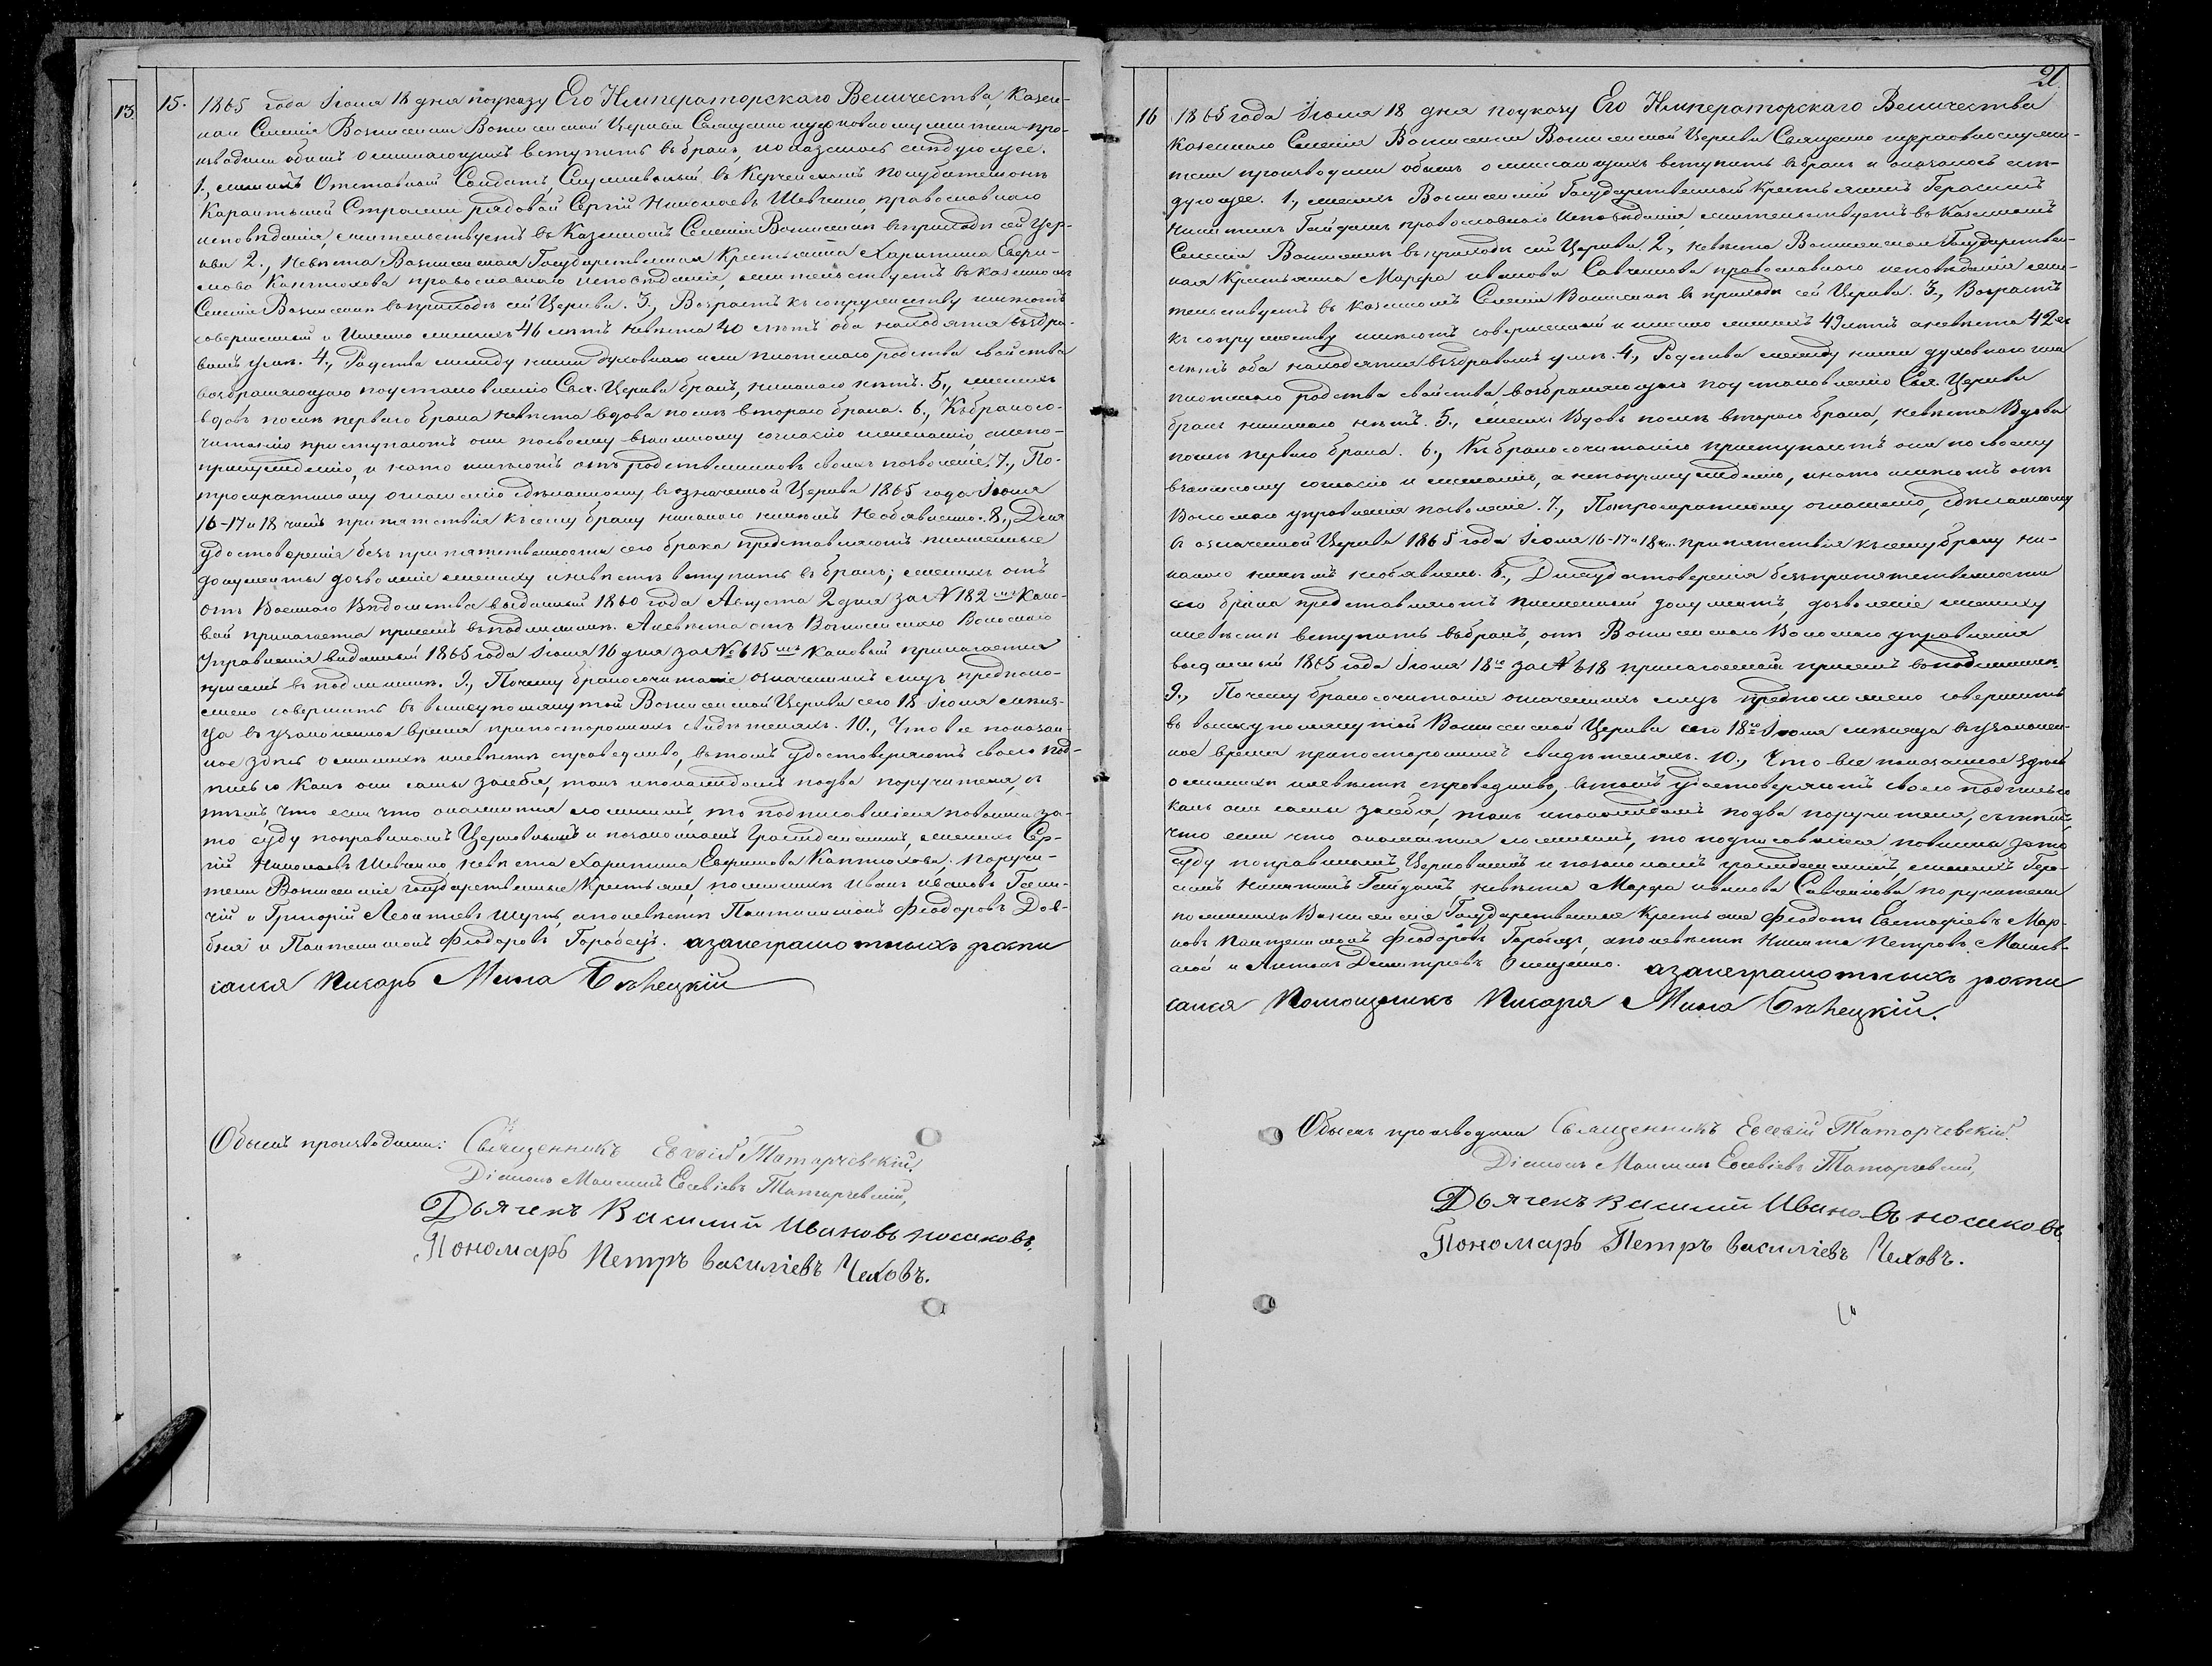 13
15.
1865 года Іюля 18 дня поуказу Его Императорскаго Величества, Казен-
номъ Селеніи Вознесенки Вознесенской Церкви Священно и церковнослужители про-
изводили обыскъ о желающихъ вступить въ бракъ, и оказалось слѣдующее.
1., женихъ Отставной Солдатъ, Служившій въ Керченскомъ полубаталіонѣ
Карантинной Стражи рядовой Сергій Николаевъ Шевченко, православнаго
исповѣданія, жительствуетъ въ Казенномъ Селеніи Вознесенки въ приходѣ сей Цер-
кви 2., Невѣста Вознесенская Государственная Крестьянка Харитина Евфи-
мова Каптюхова православнаго исповѣданія, жительствуетъ въ казенномъ
Селеніи Вознесенки въ приходѣ сей Церкви. 3., Возрастъ къ супружеству имѣютъ
совершенный и Именно женихъ 46 лѣтъ невѣста 40 лѣтъ оба находятся въ здра-
вомъ умѣ. 4., Родства между ними духовнаго или плотскаго родства свойства
возбраняющаго по установленію Свят. Церкви бракъ, никакого нѣтъ. 5., женихъ
вдовъ послѣ перваго брака невѣста вдова послѣ втораго брака. 6., Къ бракосо-
читанію приступаютъ они по своему взаимному согласію и желанію, а не по-
принужденію, и на то имѣютъ отъ родственниковъ своихъ позволеніе. 7., По-
троекратному оглашенію сдѣланному въ означенной Церкви 1865 года Іюля
16-17 и 18 чиселъ препятствія къ сему браку никакого никѣмъ необявлено. 8., Для
удостовѣренія безъ препятственности сего брака представляютъ письменные
документы дозволеніе жениху и невѣстѣ вступить въ бракъ; женихъ отъ
отъ Военнаго Вѣдомства выданный 1860 года Августа 2 дня за № 182 мъ како-
вой прилагается присемъ въ подлинникѣ. А невѣста отъ Вознесенскаго Волостнаго
Управленія виданный 1865 года Іюля 16 дня за № 615 мъ каковый прилагается
присемъ въ подлинникѣ. 9., Почему бракосочитаніе означенныхъ лицъ предполо-
жено совершить въ вышеупомянутой Вознесенской Церкви сего 18 Іюля мѣся-
ца въ узаконенное время при постороннихъ свидѣтеляхъ. 10., Что все показан-
ное здѣсь о женихѣ и невѣстѣ справедливо, въ томъ удостовѣряютъ своею под-
писью какъ они сами за себя, такъ и по каждомъ по два поручителя, съ
тѣмъ, что если что окажется ложнымъ, то подписавшіеся повинны за-
то суду по правиламъ Церковнымъ и по законамъ гражданскимъ, женихъ Сер-
гій Николаевъ Шевченко, невѣста Харитина Евфимова Каптюхова; поручи-
тели Вознесенскіе государственные Крестьяне, по женихѣ Иванъ Ивановъ
и Григорій Леонтіевъ Шугъ, а по невѣстѣ Пантелимонъ Федоровъ Дов-
бня и Пантелимонъ Федоровъ Горобецъ. а за неграмотныхъ роспи
сался Писарь Мина Бѣлецкій
Обыскъ производили: Священникъ Евсевій Татарчевскій.
Діаконъ Максимъ Евсевіевъ Татарчевскій,
Дьячекъ Василий Ивановъ Носиковъ.
Пономарь Петръ Василіевъ Чеховъ.
21
16
1865 года Іюля 18 дня поуказу Его Императорскаго Величества
Казенномъ Селеніи Вознесенки Вознесенской Церкви Священно и церковнослужи-
тели производили обыскъ о желающихъ вступить въ бракъ и оказалось слѣ-
дующее. 1., женихъ Вознесенскій Государственный Крестьянинъ Герасимъ
Никитинъ Гайдамъ православнаго исповѣданія, жительствуетъ въ Казенномъ
Селеніи Вознесенки въ приходѣ сей Церкви. 2., невѣста Вознесенская Государствен-
ная Крестьянка Марфа Иванова Савченкова православнаго исповѣданія жи-
тельствуетъ въ казенномъ Селеніи Вознесенки въ приходѣ сей Церкви. 3., Возрастъ
къ супружеству имѣютъ совершенный и именно женихъ 49 лѣтъ а невѣста 42 хъ
лѣтъ оба находятся въ здравомъ умѣ. 4., Родства между ними духовнаго или
плотскаго родства свойства, возбраняющаго по установленію Свят. Церкви
бракъ никакого нѣтъ. 5., женихъ Вдовъ послѣ втораго брака, невѣста Вдова
послѣ перваго брака. 6., Къ бракосочитанію приступаютъ они по своему
взаимному согласію и желанію, а не по принужденію, и на то имѣютъ отъ
Волостнаго управленія позволеніе. 7., По троекратному оглашенію, сдѣланному
въ означенной Церкви 1865 года Іюля 16-17 и 18 чис. препятствія къ сему браку ни-
какого никѣмъ необявлен. 8., Для удостовѣренія безъпрепятственности
сего брака представляютъ письменный документъ, дозволеніе жениху
и невѣстѣ вступить въ бракъ, отъ Вознесенскаго Волостнаго управленія
выданный 1865 года Іюля 18 го за № 618 прилагаемый присемъ въ подлинникѣ.
9., Почему бракосочитаніе означенныхъ лицъ предположено совершить
въ вышеупомянутой Вознесенской Церкви сего 18 го Іюля мѣсяца въ узаконен-
ное время при постороннихъ свидѣтеляхъ. 10., Что все показанное здѣсь
о женихѣ и невѣстѣ справедливо, въ томъ удостовѣряютъ своею подписью
какъ они сами за себя, такъ и по каждомъ по два поручителя, съ тѣмъ,
что если что окажется ложнымъ, то подписавшіеся повинны за то
суду по правиламъ Церковнымъ и по законамъ гражданскимъ, женихъ Гера-
симъ Никитинъ Гайдамъ невѣста Марфа Иванова Савченкова поручители
по женихѣ Вознесенскіе Государственные Крестьяне Федотъ Евстафіевъ Мар-
ковъ Пантелимонъ Федоровъ Горобецъ, а по невѣстѣ Никита Петровъ
и Антонъ Димитріевъ Онищенко. а за неграмотныхъ роспи
сался Помощникъ Писаря Мина Бѣлецкій.
Обыскъ производили Священникъ Евсевій Татарчевскій.
Діаконъ Максимъ Евсевіевъ Татарчевскій,
Дьячекъ Василий Ивановъ Носиковъ
Пономарь Петръ Василіевъ Чеховъ.